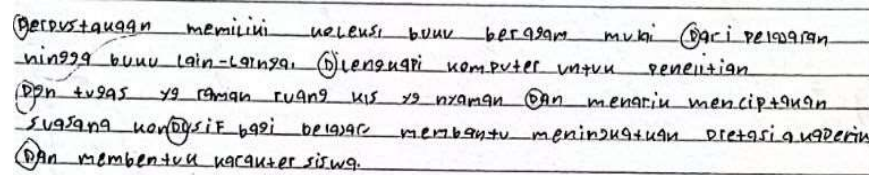 Perpustakaan memiliki koleksi buku beragam mulai Dari pelajaran
hingga buku lain-lainya. Dilengkapi komputer untuk penelitian
Dan tugas yg raman ruang kls yg nyaman Dan menarik menciptakan
suasana konDusif bagi belajar membantu meningkatkan pretasi akaDemik
Dan membentuk karakter siswa.